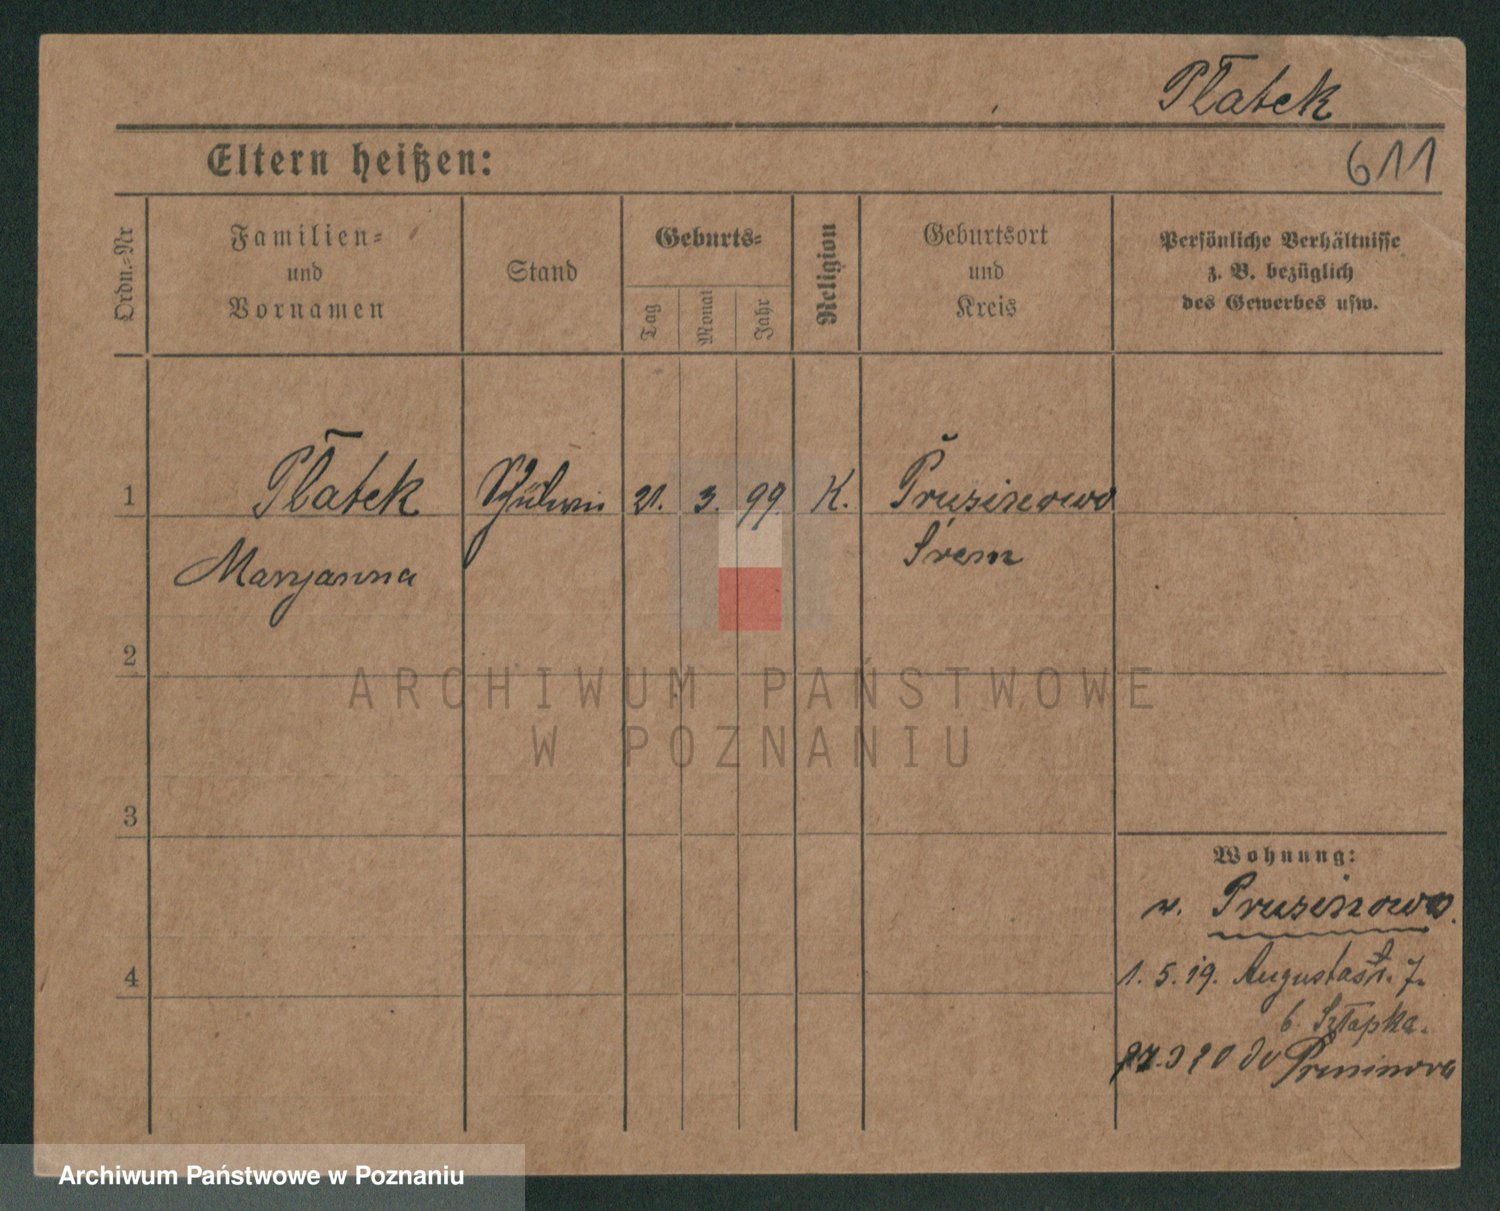 Płatek
Eltern heißen:
611
Ordn.-Nr
Familien-
und
Vornamen
Stand
Geburts-
Tag
Monat
Jahr
Religion
Geburtsort
und
Kreis
Persönliche Verhältnisse
z. B. bezüglich
des Gewerbes usw.
1
Płatek
Schülerin
21. 3. 99
K.
Prusinowo
Maryanna
Śrem
2
ARCHIWUM PAŃSTWOWE
W POZNANIU
3
Wohnung:
v. Prusinowo.
4
1. 5. 19. Augustastr. 7.
b. Sztapka.
Prusinowa
Archiwum Państwowe w Poznaniu